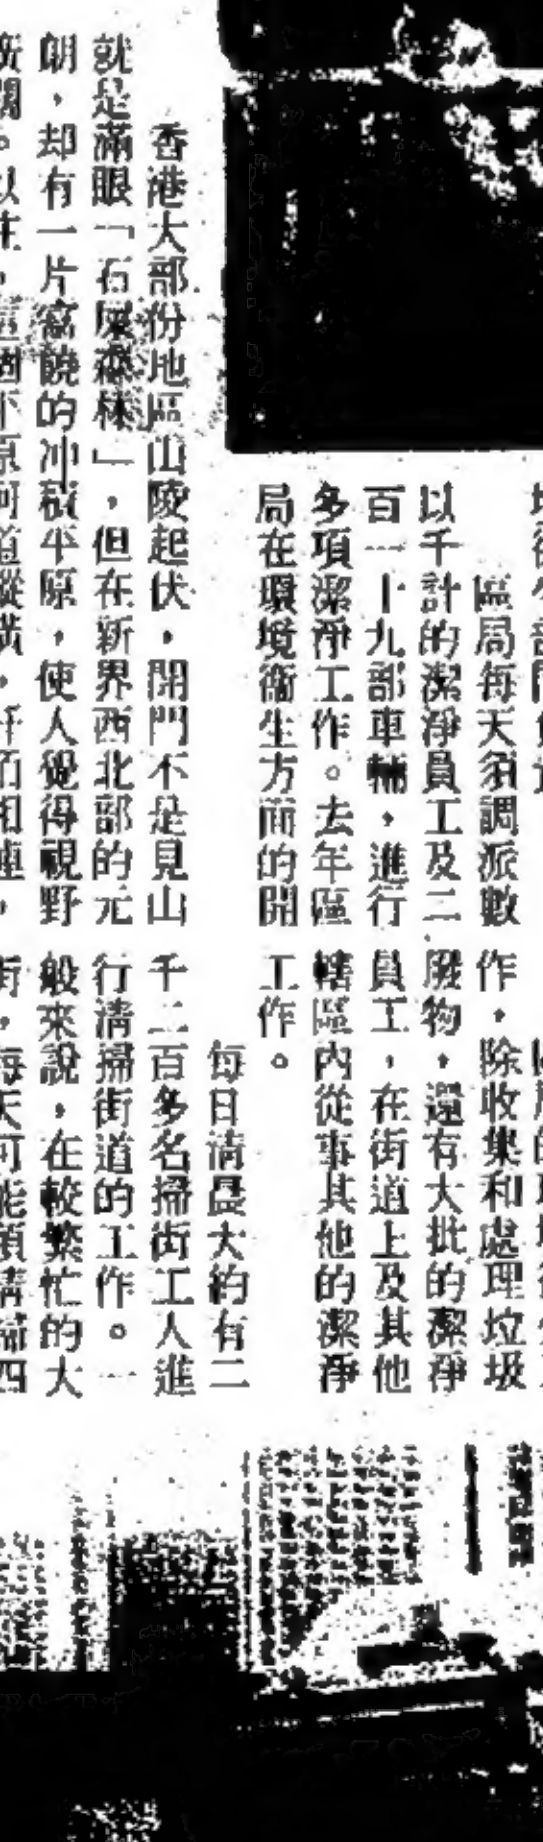 區局每天須調派數
以千計的潔淨員工及二
百一十九部車輛，進行
多項潔淨工作。去年區
局在環境衞生方面的開
作，除收集和處理垃圾
廢物，還有大批的潔淨
員工，在街道上及其他
轄區內從事其他的潔淨
工作。
每日清晨大約有二
千二百多名掃街工人進
行清掃街道的工作。一
般來說，在較繁忙的大
街，每天可能須清掃四
香港大部份地區山陵起伏，開門不是見山
就是滿眼「石屎森林」，但在新界西北部的元
朗，却有一片富饒的冲積平原，使人覺得視野